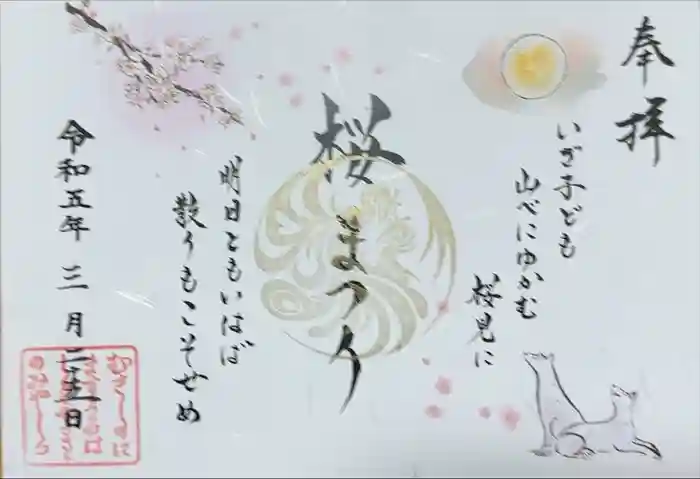 奉拝
いざ子ども
山べにゆかむ
桜見に
桜まつり
明日ともいはば
散りもこそせめ
令和五年三月二十五日